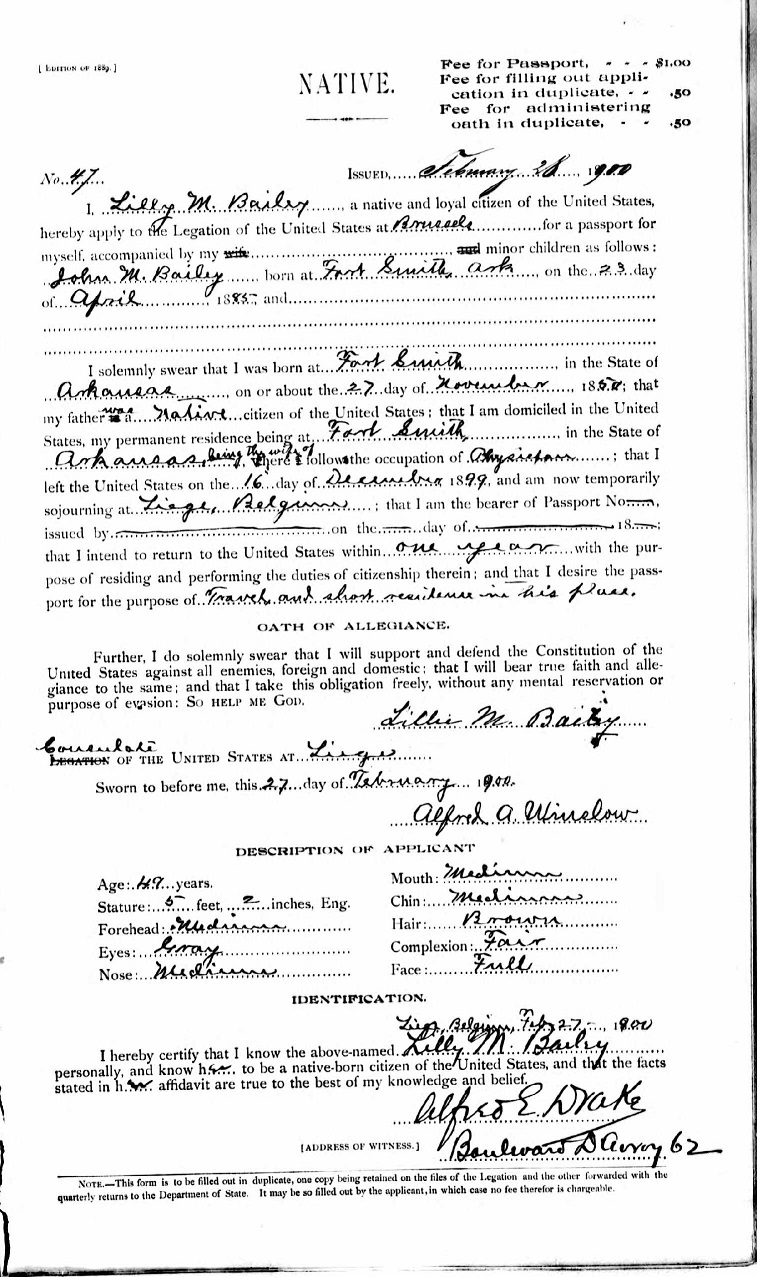 [EDITION OF 1889.]
NATIVE.
Fee for Passport, - - - $1.00
Fee for filling out appli-
cation in duplicate, - - .50
Fee for administering
oath in duplicate, - - .50
No. 47 ISSUED, February 28, 1900
I, Lilly M. Bailey, a native and loyal citizen of the United States,
hereby apply to the Legation of the United States at Brussels for a passport for
myself, accompanied by my wife and minor children as follows:
John M. Bailey born at Fort Smith, Ark, on the 23 day
of April, 1885 and
I solemnly swear that I was born at Fort Smith, in the State of
Arkansas, on or about the 27 day of November, 1850; that
my father was a Native citizen of the United States; that I am domiciled in the United
States, my permanent residence being at Fort Smith, in the State of
Arkansas, being the wife of follows the occupation of Physician; that I
left the United States on the 16 day of December 1899, and am now temporarily
sojourning at Liege, Belgium; that I am the bearer of Passport No.
issued by on the day of 18 ;
that I intend to return to the United States within one year with the pur-
pose of residing and performing the duties of citizenship therein; and that I desire the pass-
port for the purpose of Travel and short residence in his place.
OATH OF ALLEGIANCE.
Further, I do solemnly swear that I will support and defend the Constitution of the
United States against all enemies, foreign and domestic; that I will bear true faith and alle-
giance to the same; and that I take this obligation freely, without any mental reservation or
purpose of evasion: SO HELP ME GOD.
Lillie M. Bailey
Consulate
LEGATION OF THE UNITED STATES AT Liege
Sworn to before me, this 27 day of February 1900.
Alfred A. Winslow
DESCRIPTION OF APPLICANT
Age: 49 years.
Stature: 5 feet, 2 inches, Eng.
Forehead: Medium
Eyes: Gray
Nose: Medium
Mouth: Medium
Chin: Medium
Hair: Brown
Complexion: Fair
Face: Full
IDENTIFICATION.
Liege, Belgium, Feb. 27, 1900
I hereby certify that I know the above-named Lilly M. Bailey
personally, and know her to be a native-born citizen of the United States, and that the facts
stated in her affidavit are true to the best of my knowledge and belief.
Alfred E. Drake
[ADDRESS OF WITNESS.] Boulevard D'Avroy 62
NOTE.—This form is to be filled out in duplicate, one copy being retained on the files of the Legation and the other forwarded with the
quarterly returns to the Department of State. It may be so filled out by the applicant, in which case no fee therefor is chargeable.